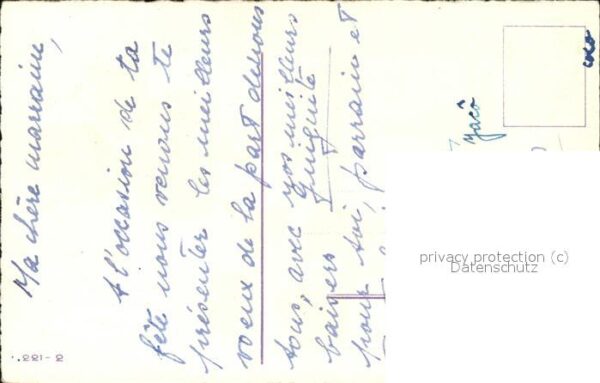 Ma chère marraine,
A l'occasion de ta
fête nous venons te
présenter les meilleurs
voeux de la part de nous
tous, avec nos meilleurs
baisers Guiguite
pour toi, parrain et
Jacô
coco
221-2
privacy protection (c)
Datenschutz